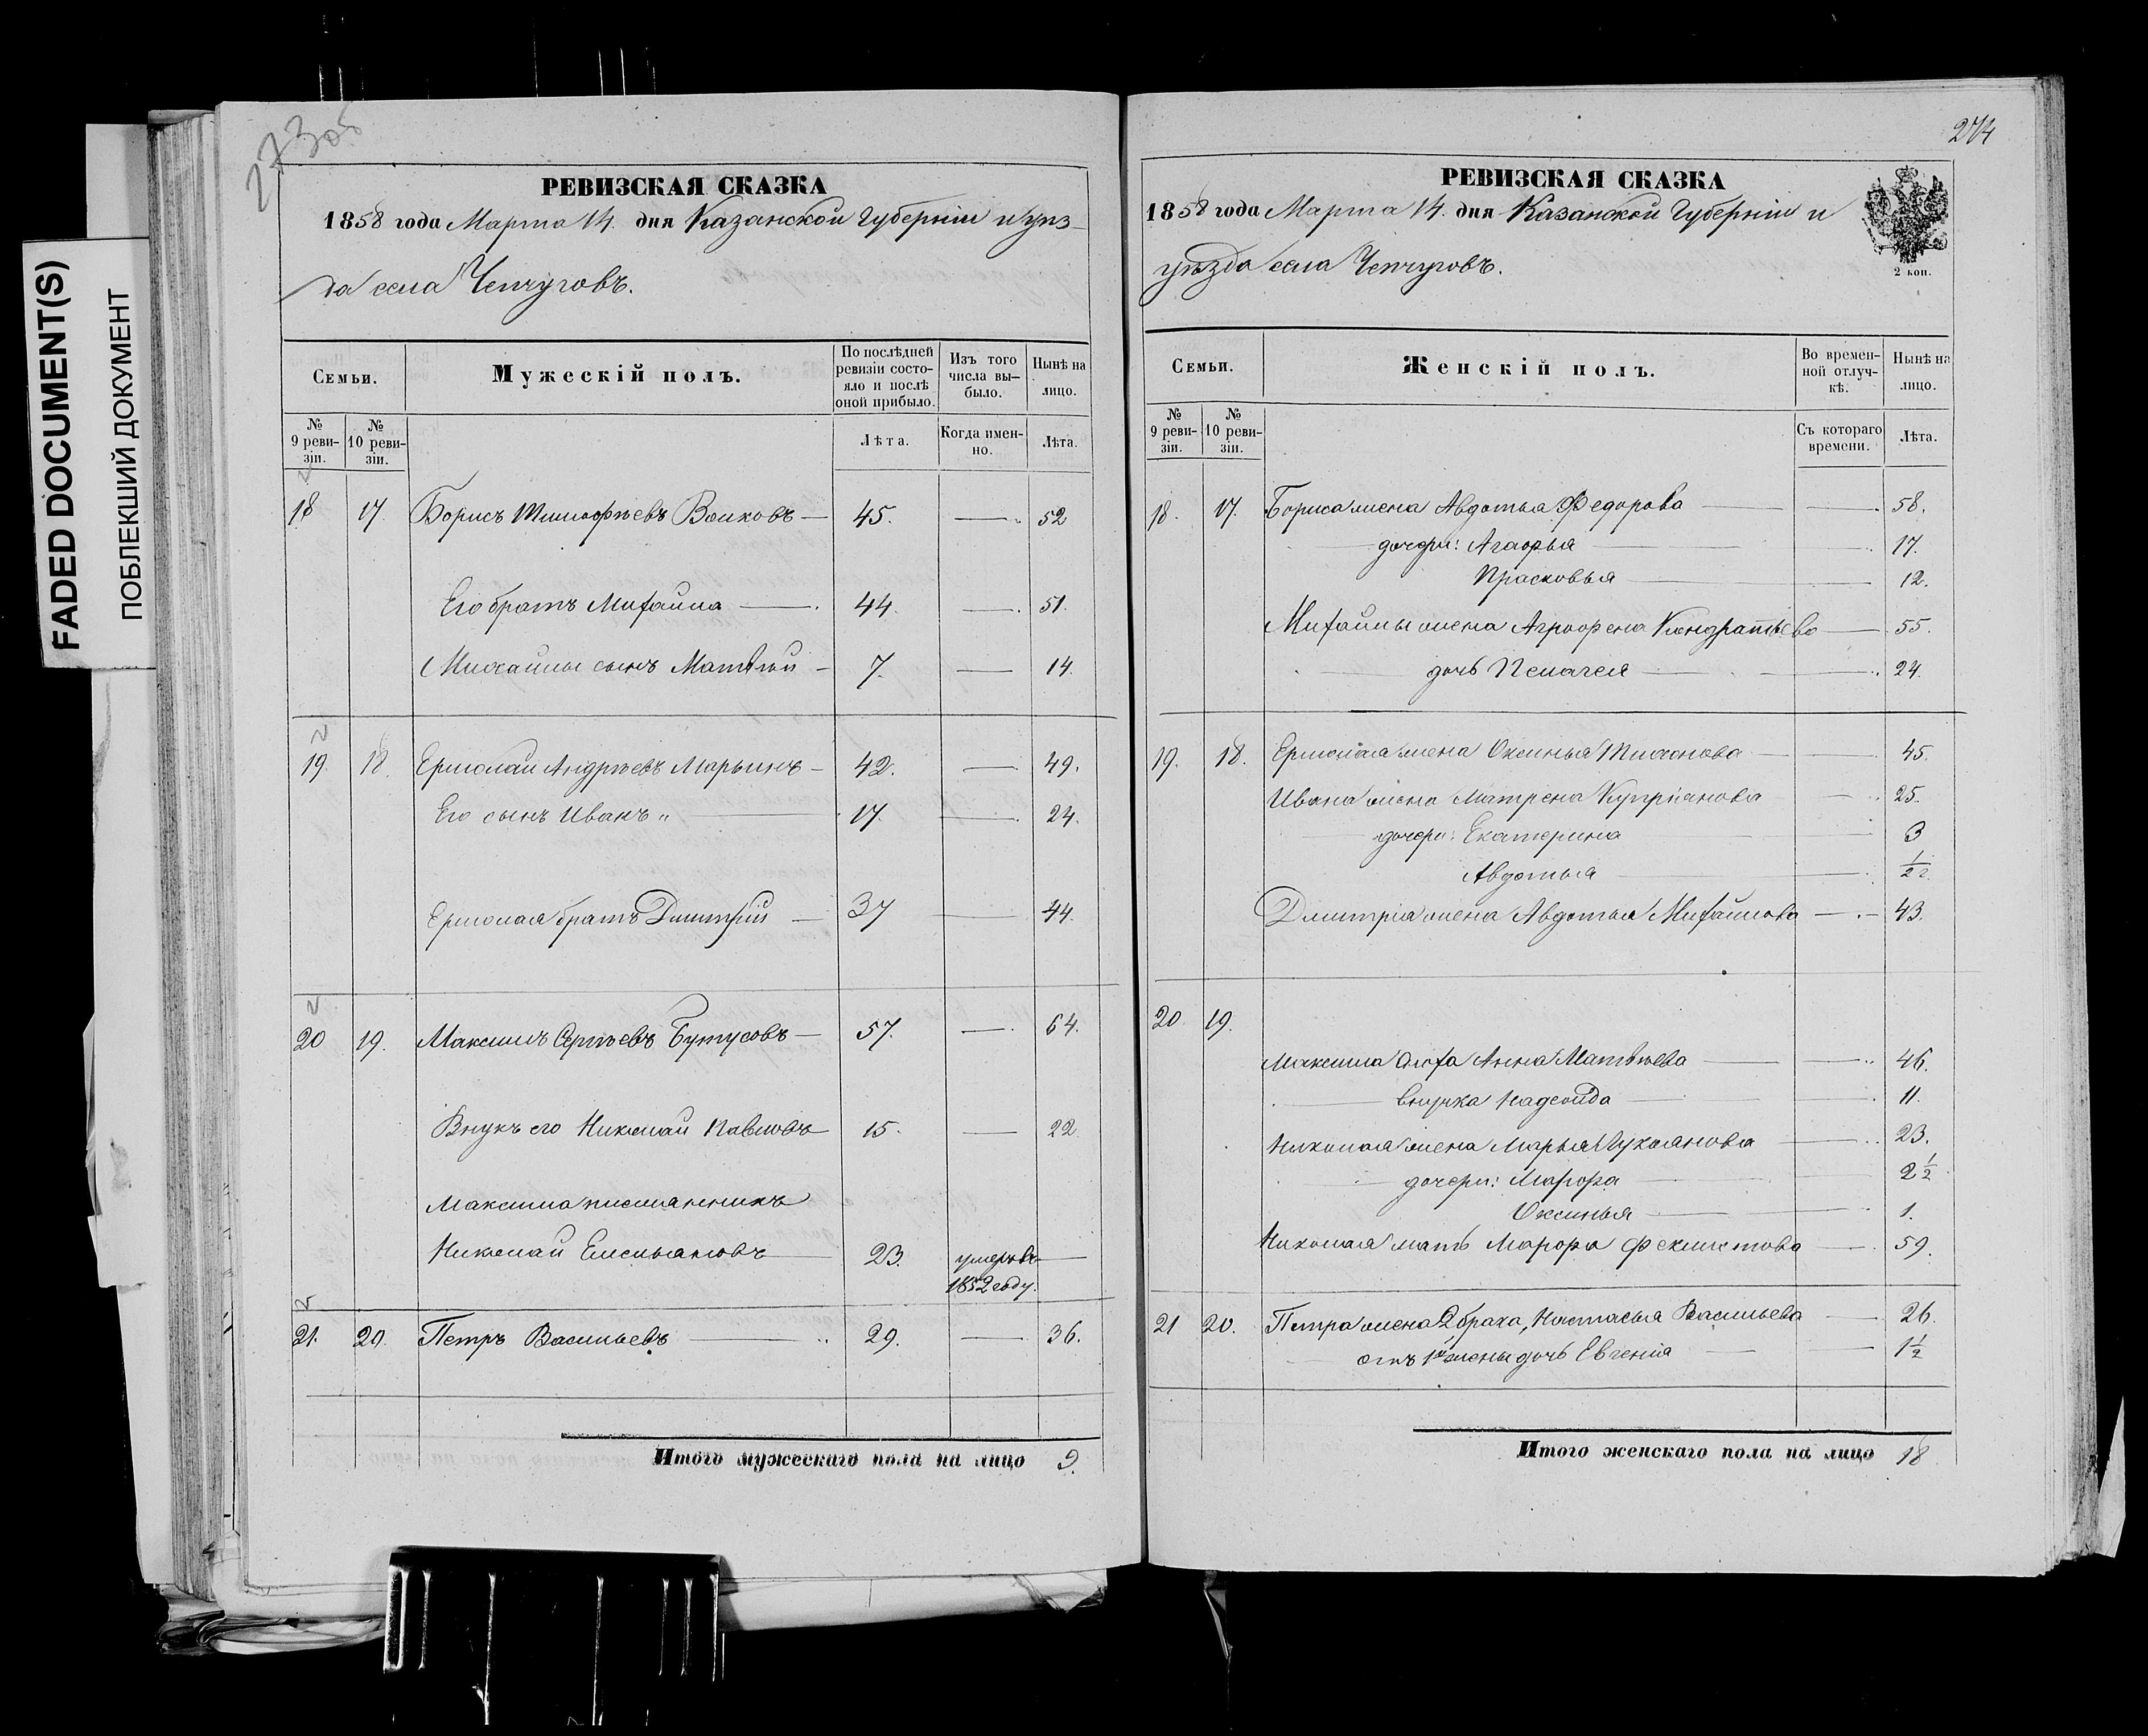 FADED DOCUMENT(S)
ПОБЛЕКШИЙ ДОКУМЕНТ
273об
РЕВИЗСКАЯ СКАЗКА
1858 года Марта 14. дня Казанской Губерніи и уѣз-
да села Чепчуговъ.
Семьи.
Мужескій полъ.
По послѣдней ревизіи состояло и послѣ оной прибыло.
Изъ того числа вы-было.
Нынѣ на лицо.
№ 9 реви-зіи.
№ 10 реви-зіи.
Лѣта.
Когда имен-но.
Лѣта.
18 17. Борисъ Тимофѣевъ Волковъ — 45. — 52
Его братъ Михайла — 44. — 51.
Михайлы сынъ Матвѣй — 7. — 14.
19. 18. Ермолай Андрѣевъ Марьинъ — 42. — 49.
Его сынъ Иванъ „ — 17. — 24.
Ермолая братъ Дмитрій — 37 — 44.
20 19. Максимъ Сергѣевъ Бутусовъ — 57. — 64.
Внукъ его Николай Павловъ 15. — 22
Максима племянникъ
Николай Емельяновъ 23. умеръ въ —
1852 году.
21. 20. Петръ Васильевъ — 29. — 36.
Итого мужескаго пола на лицо 9.
274
РЕВИЗСКАЯ СКАЗКА
1858 года Марта 14. дня Казанской Губерніи и
уѣзда села Чепчуговъ.
2 коп.
Семьи.
Женскій полъ.
Во времен-ной отлуч-кѣ.
Нынѣ на лицо.
№ 9 реви-зіи.
№ 10 реви-зіи.
Съ котораго времени.
Лѣта.
18. 17. Бориса жена Авдотья Федорова — 58.
дочери: Агафья — 17.
Прасковья — 12.
Михайлы жена Аграфена Кондратьева — 55.
дочь Пелагея — 24.
19. 18. Ермолая жена Оксинья Тихонова — 45.
Ивана жена Матрена Купріянова — 25.
дочери: Екатерина — 3
Авдотья — 1/2 г.
Дмитрія жена Авдотья Михайлова — 43.
20 19.
Максима сноха Анна Матвѣева — 46.
внучка Надежда — 11.
Николая жена Марья Лукоянова — 23.
дочери: Марфа — 2 1/2
Оксинья — 1.
Николая мать Марфа Феклистова — 59.
21 20. Петра жена 2 брака, Настасья Васильева — 26.
отъ 1й жены дочь Евгенія — 1 1/2
Итого женскаго пола на лицо 18